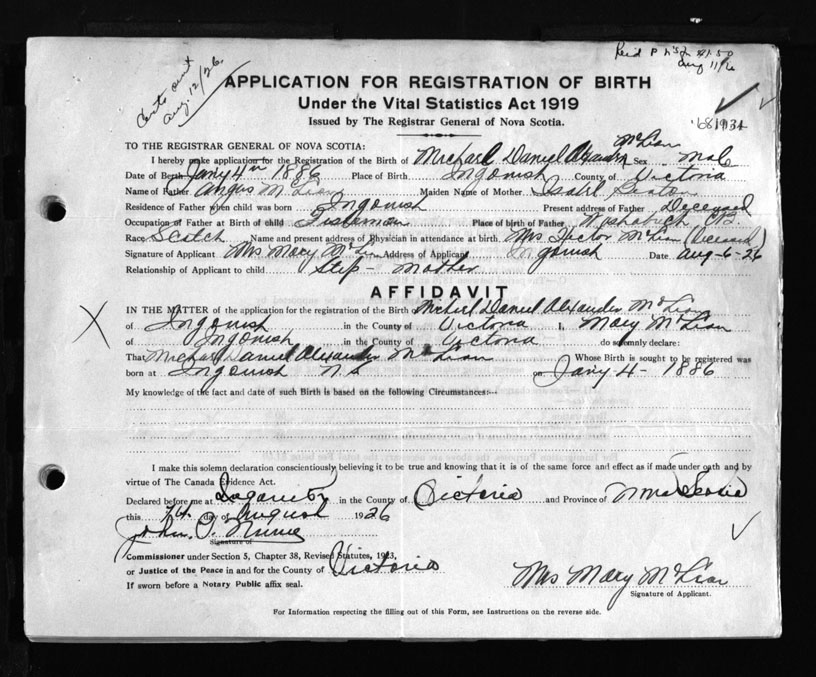 Certs sent
Aug. 12/26.
$1.50
Aug 11/26
APPLICATION FOR REGISTRATION OF BIRTH
Under the Vital Statistics Act 1919
Issued by The Registrar General of Nova Scotia.
TO THE REGISTRAR GENERAL OF NOVA SCOTIA:
McLean
I hereby make application for the Registration of the Birth of Michael Daniel Alexander Sex male
Date of Birth Jany 4th 1886 Place of Birth Ingonish County of Victoria
Name of Father Angus McLean Maiden Name of Mother Isabel
Residence of Father when child was born Ingonish Present address of Father Deceased
Occupation of Father at Birth of child Fisherman Place of birth of Father Washabuck C.B.
Race Scotch Name and present address of Physician in attendance at birth Mrs Hector McLean (Deceased)
Signature of Applicant Mrs Mary McLean Address of Applicant Ingonish Date Aug-6-26
Relationship of Applicant to child Step-Mother
AFFIDAVIT
IN THE MATTER of the application for the registration of the Birth Michael Daniel Alexander McLean
of Ingonish in the County of Victoria I, Mary McLean
of Ingonish in the County of Victoria do solemnly declare:
That Michael Daniel Alexander McLean Whose Birth is sought to be registered was
born at Ingonish N.S. on Jany 4-1886
My knowledge of the fact and date of such Birth is based on the following Circumstances:—
I make this solemn declaration conscientiously believing it to be true and knowing that it is of the same force and effect as if made under oath and by
virtue of The Canada Evidence Act.
Declared before me at Ingonish in the County of Victoria and Province of Nova Scotia
this day of August 1926
John
Signature of
Commissioner under Section 5, Chapter 38, Revised Statutes, 1923,
or Justice of the Peace in and for the County of Victoria
If sworn before a Notary Public affix seal.
Mrs Mary McLean
Signature of Applicant.
For Information respecting the filling out of this Form, see Instructions on the reverse side.